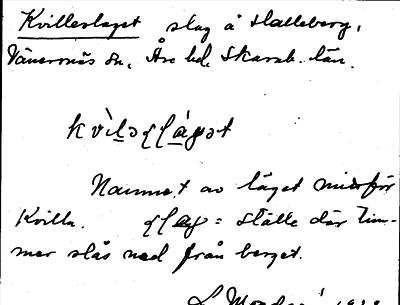 Kvilleslaget slag å Halleberg,
Vänersnäs sn, Åse hd, Skarab. län.
Namnet av läget nedanför
Kvilla. slag = ställe där tim-
mer slås ned från berget.